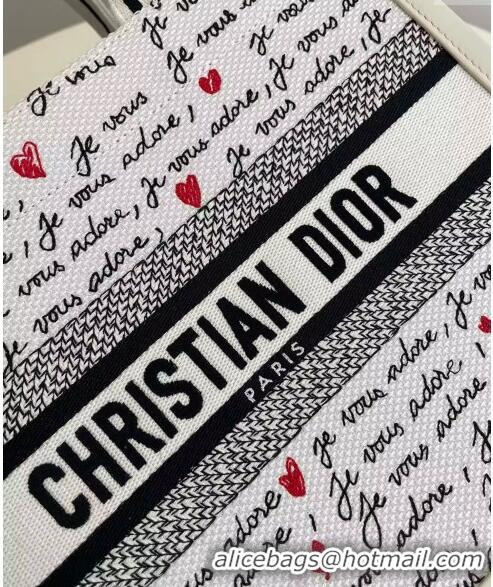 Je vous
Je vous adore, Je
Je vous adore, Je vous adore, Je
Je vous adore, Je vous adore,
Je vous adore, Je vous adore,
vous adore,
CHRISTIAN DIOR
PARIS
Je vous adore,
Je vous adore, Je
Je vous adore, Je vous adore
Je vous adore,
alicebags@hotmail.com